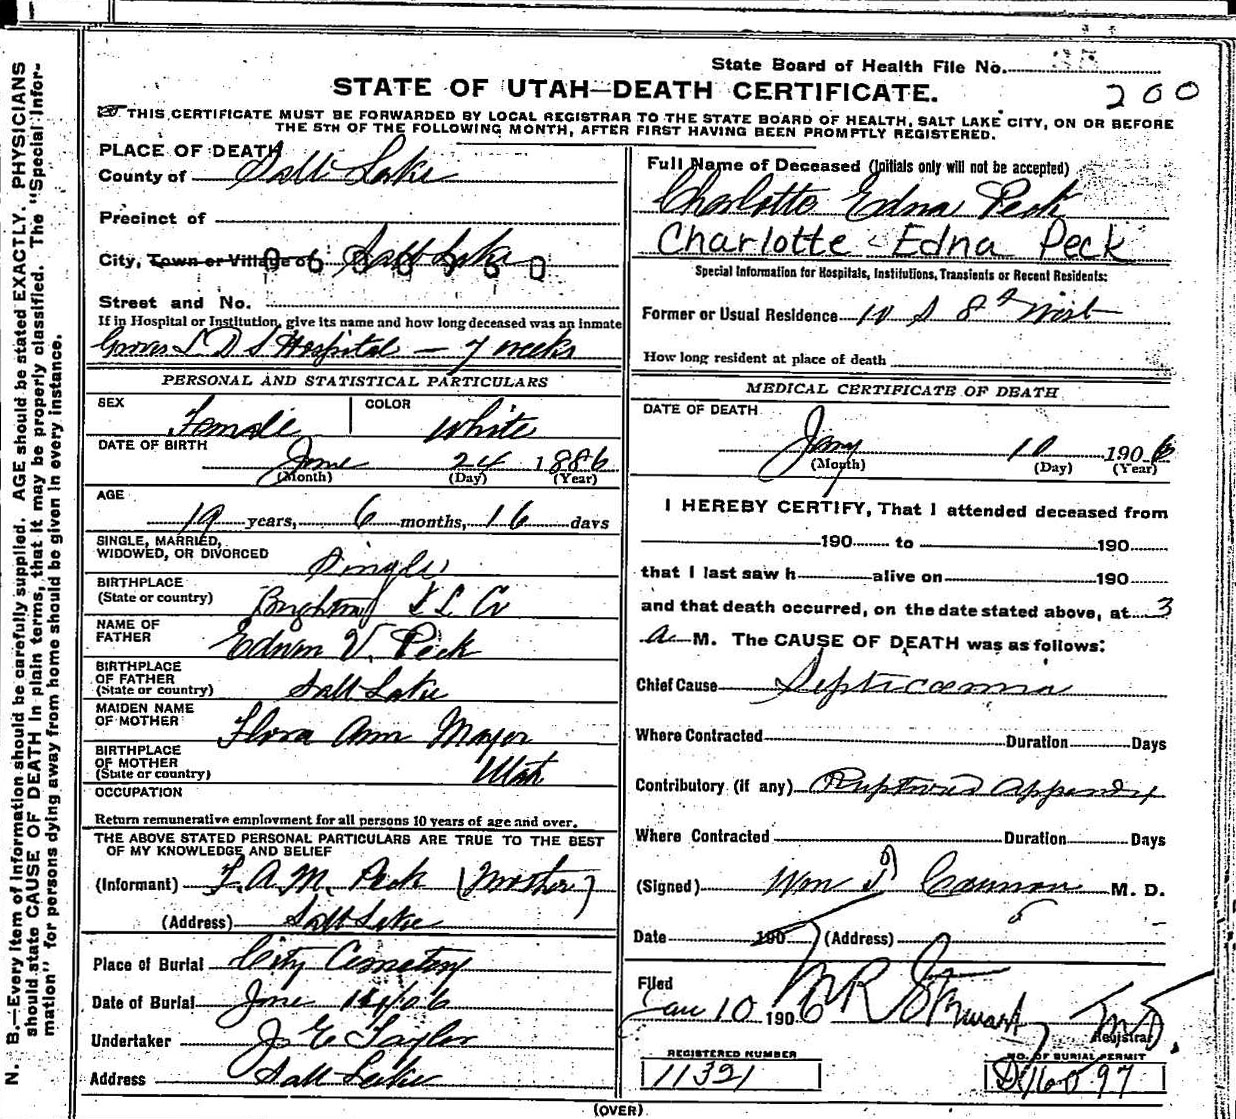 State Board of Health File No.
STATE OF UTAH—DEATH CERTIFICATE.
200
THIS CERTIFICATE MUST BE FORWARDED BY LOCAL REGISTRAR TO THE STATE BOARD OF HEALTH, SALT LAKE CITY, ON OR BEFORE
THE 5TH OF THE FOLLOWING MONTH, AFTER FIRST HAVING BEEN PROMPTLY REGISTERED.
PLACE OF DEATH
County of Salt Lake
Precinct of
City, Town or Village of Salt Lake
Street and No.
If in Hospital or Institution, give its name and how long deceased was an inmate
Groves L D S Hospital — 7 weeks
PERSONAL AND STATISTICAL PARTICULARS
SEX Female COLOR White
DATE OF BIRTH
June 24 1886
(Month) (Day) (Year)
AGE
19 years, 6 months, 16 days
SINGLE, MARRIED,
WIDOWED, OR DIVORCED Single
BIRTHPLACE
(State or country) Brighton S L Co
NAME OF
FATHER Edwin V. Peck
BIRTHPLACE
OF FATHER
(State or country) Salt Lake
MAIDEN NAME
OF MOTHER Flora Ann Mayor
BIRTHPLACE
OF MOTHER
(State or country) Utah
OCCUPATION
Return remunerative employment for all persons 10 years of age and over.
THE ABOVE STATED PERSONAL PARTICULARS ARE TRUE TO THE BEST
OF MY KNOWLEDGE AND BELIEF
(Informant) F. A. M. Peck (Mother)
(Address) Salt Lake
Place of Burial City Cemetery
Date of Burial
Undertaker J E Taylor
Address Salt Lake
Full Name of Deceased (Initials only will not be accepted)
Charlotte Edna Peck
Charlotte Edna Peck
Special Information for Hospitals, Institutions, Transients or Recent Residents:
Former or Usual Residence 10 S 8th West
How long resident at place of death
MEDICAL CERTIFICATE OF DEATH
DATE OF DEATH
Jany 10 1906
(Month) (Day) (Year)
I HEREBY CERTIFY, That I attended deceased from
190 to 190
that I last saw h alive on 190
and that death occurred, on the date stated above, at 3
a M. The CAUSE OF DEATH was as follows:
Chief Cause Septicaemia
Where Contracted Duration Days
Contributory (if any) Ruptured Appendix
Where Contracted Duration Days
(Signed) Wm T Cannon M. D.
Date 190 (Address)
Filed
Jan 10 1906 M R Stewart MD.
Registrar
REGISTERED NUMBER
11321
NO. OF BURIAL PERMIT
(OVER)
N. B.—Every item of information should be carefully supplied. AGE should be stated EXACTLY. PHYSICIANS
should state CAUSE OF DEATH in plain terms, that it may be properly classified. The "Special Infor-
mation" for persons dying away from home should be given in every instance.